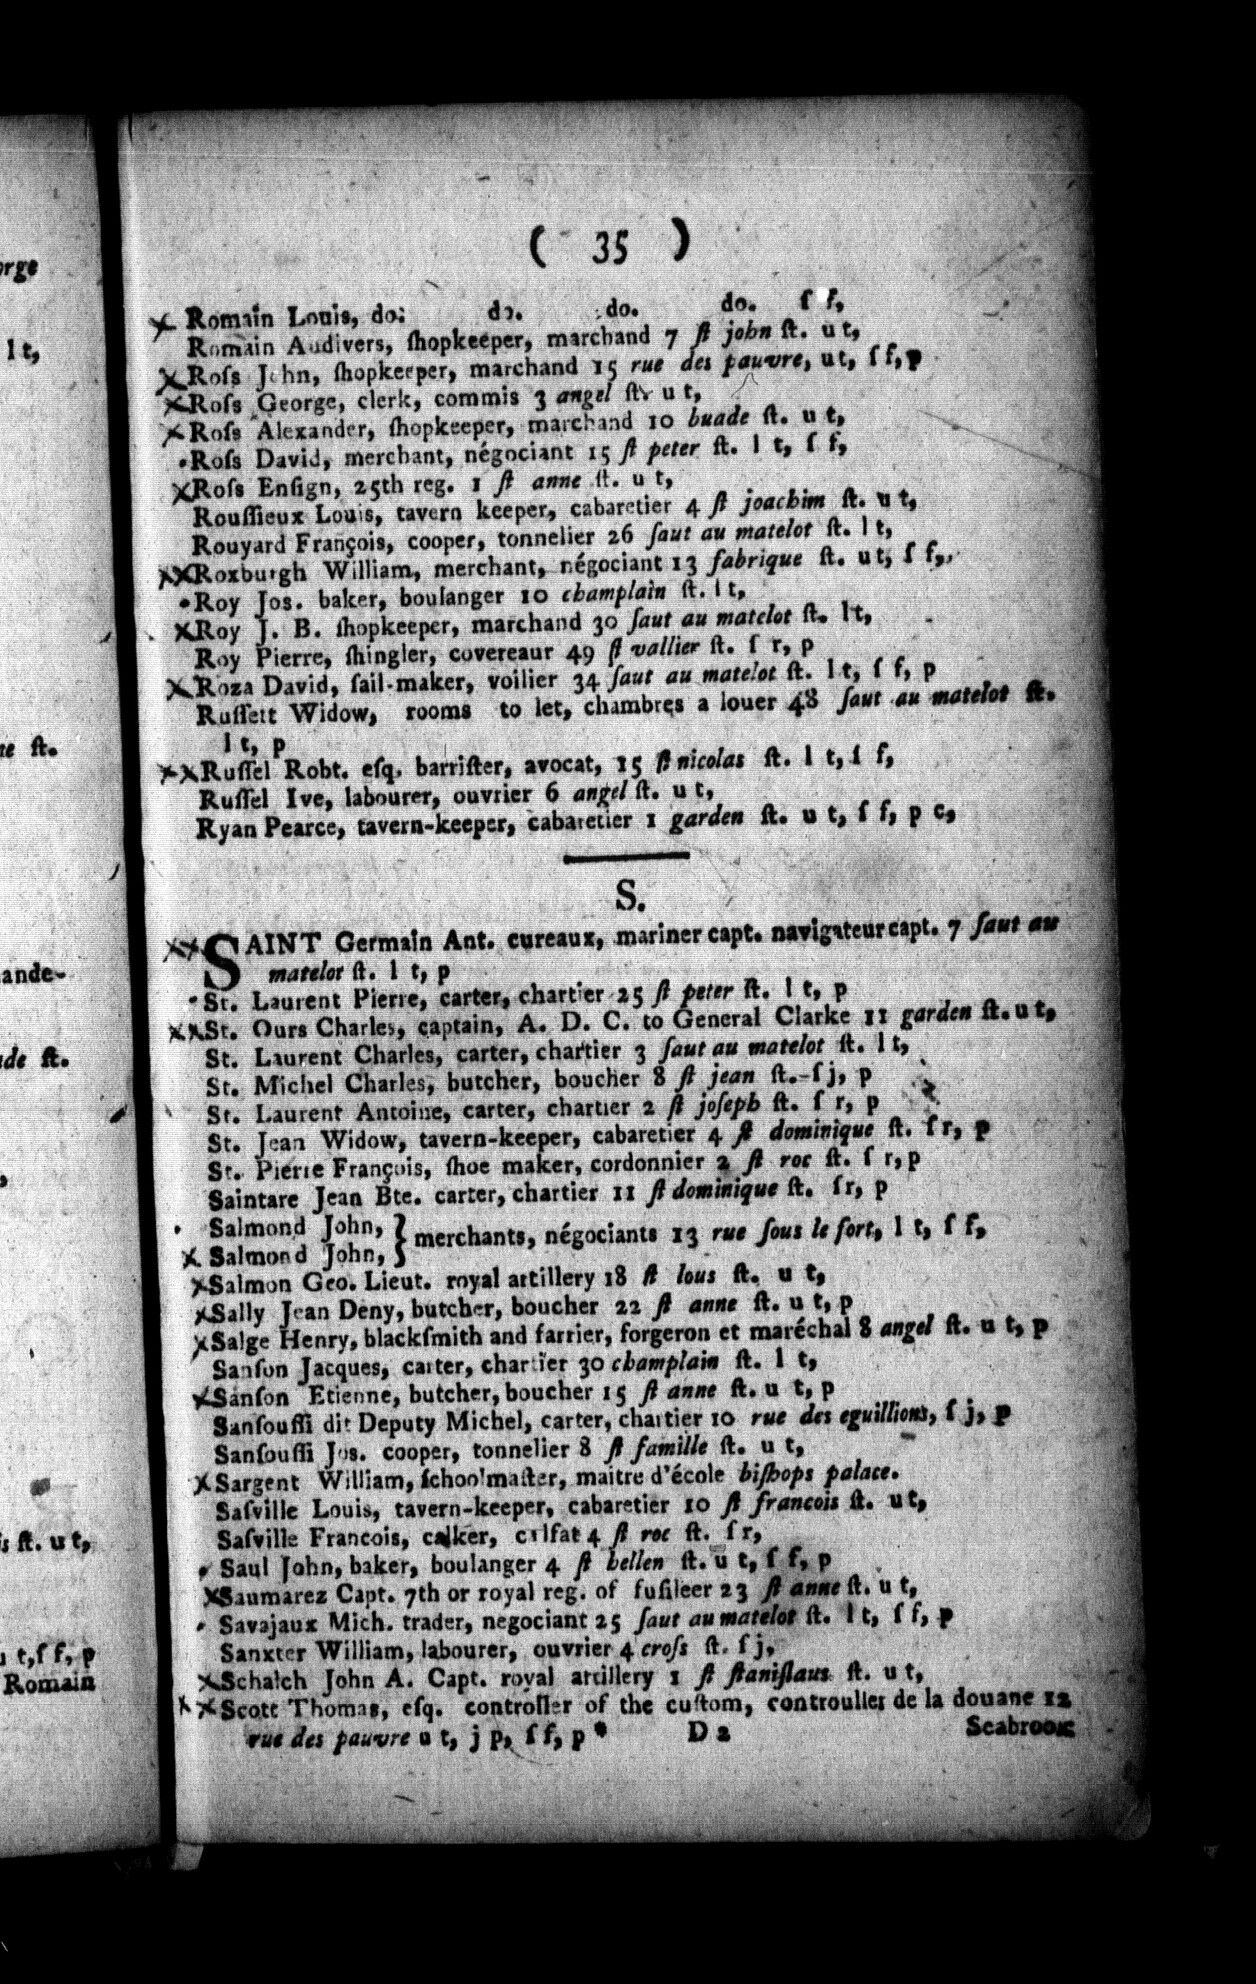 ( 35 )
Romain Louis, do: do. do. do. ſ f,
Romain Audivers, ſhopkeeper, marchand 7 ſt john ſt. u t,
Roſs John, ſhopkeeper, marchand 15 rue des pauvre, u t, ſ f, p
Roſs George, clerk, commis 3 angel ſt. u t,
Roſs Alexander, ſhopkeeper, marchand 10 buade ſt. u t,
Roſs David, merchant, négociant 15 ſt peter ſt. l t, ſ f,
Roſs Enſign, 25th reg. 1 ſt anne ſt. u t,
Rouſſieux Louis, tavern keeper, cabaretier 4 ſt joachim ſt. u t,
Rouyard François, cooper, tonnelier 26 ſaut au matelot ſt. l t,
Roxburgh William, merchant, négociant 13 fabrique ſt. u t, ſ f,
Roy Jos. baker, boulanger 10 champlain ſt. l t,
Roy J. B. ſhopkeeper, marchand 30 ſaut au matelot ſt. l t,
Roy Pierre, ſhingler, covereaur 49 ſt vallier ſt. ſ r, p
Roza David, ſail-maker, voilier 34 ſaut au matelot ſt. l t, ſ f, p
Ruſſett Widow, rooms to let, chambres a louer 48 ſaut au matelot ſt.
l t, p
Ruſſel Robt. eſq. barriſter, avocat, 15 ſt nicolas ſt. l t, ſ f,
Ruſſel Ive, labourer, ouvrier 6 angel ſt. u t,
Ryan Pearce, tavern-keeper, cabaretier 1 garden ſt. u t, ſ f, p c,
S.
SAINT Germain Ant. cureaux, mariner capt. navigateur capt. 7 ſaut au
matelot ſt. l t, p
St. Laurent Pierre, carter, chartier 25 ſt peter ſt. l t, p
St. Ours Charles, captain, A. D. C. to General Clarke 11 garden ſt. u t,
St. Laurent Charles, carter, chartier 3 ſaut au matelot ſt. l t,
St. Michel Charles, butcher, boucher 8 ſt jean ſt. ſ j, p
St. Laurent Antoine, carter, chartier 2 ſt joſeph ſt. ſ r, p
St. Jean Widow, tavern-keeper, cabaretier 4 ſt dominique ſt. ſ r, p
St. Pierre François, ſhoe maker, cordonnier 2 ſt roc ſt. ſ r, p
Saintare Jean Bte. carter, chartier 11 ſt dominique ſt. ſ r, p
Salmond John, } merchants, négociants 13 rue ſous le fort, l t, ſ f,
Salmond John,
Salmon Geo. Lieut. royal artillery 18 ſt lous ſt. u t,
Sally Jean Deny, butcher, boucher 22 ſt anne ſt. u t, p
Salge Henry, blackſmith and farrier, forgeron et maréchal 8 angel ſt. u t, p
Sanſon Jacques, carter, chartier 30 champlain ſt. l t,
Sanſon Etienne, butcher, boucher 15 ſt anne ſt. u t, p
Sanſouſſi dit Deputy Michel, carter, chartier 10 rue des eguillions, ſ j, p
Sanſouſſi Jos. cooper, tonnelier 8 ſt famille ſt. u t,
Sargent William, ſchoolmaſter, maitre d'école biſhops palace.
Saſville Louis, tavern-keeper, cabaretier 10 ſt francois ſt. u t,
Saſville Francois, calker, calfat 4 ſt roc ſt. ſ r,
Saul John, baker, boulanger 4 ſt hellen ſt. u t, ſ f, p
Saumarez Capt. 7th or royal reg. of fuſileer 23 ſt anne ſt. u t,
Savajaux Mich. trader, negociant 25 ſaut au matelot ſt. l t, ſ f, p
Sanxter William, labourer, ouvrier 4 croſs ſt. ſ j,
Schalch John A. Capt. royal artillery 1 ſt ſtaniſlaus ſt. u t,
Scott Thomas, eſq. controller of the cuſtom, controulles de la douane 12
rue des pauvre u t, j p, ſ f, p *
D 2
Seabrook
orge
l t,
ſt.
ande-
ſt.
ſt. u t,
u t, ſ f, p
Romain